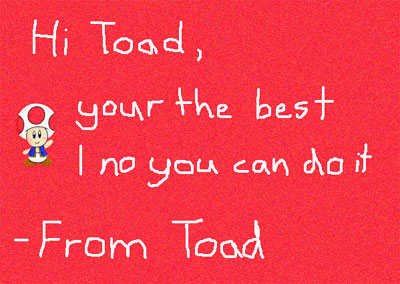 Hi Toad,
your the best
I no you can do it
-From Toad